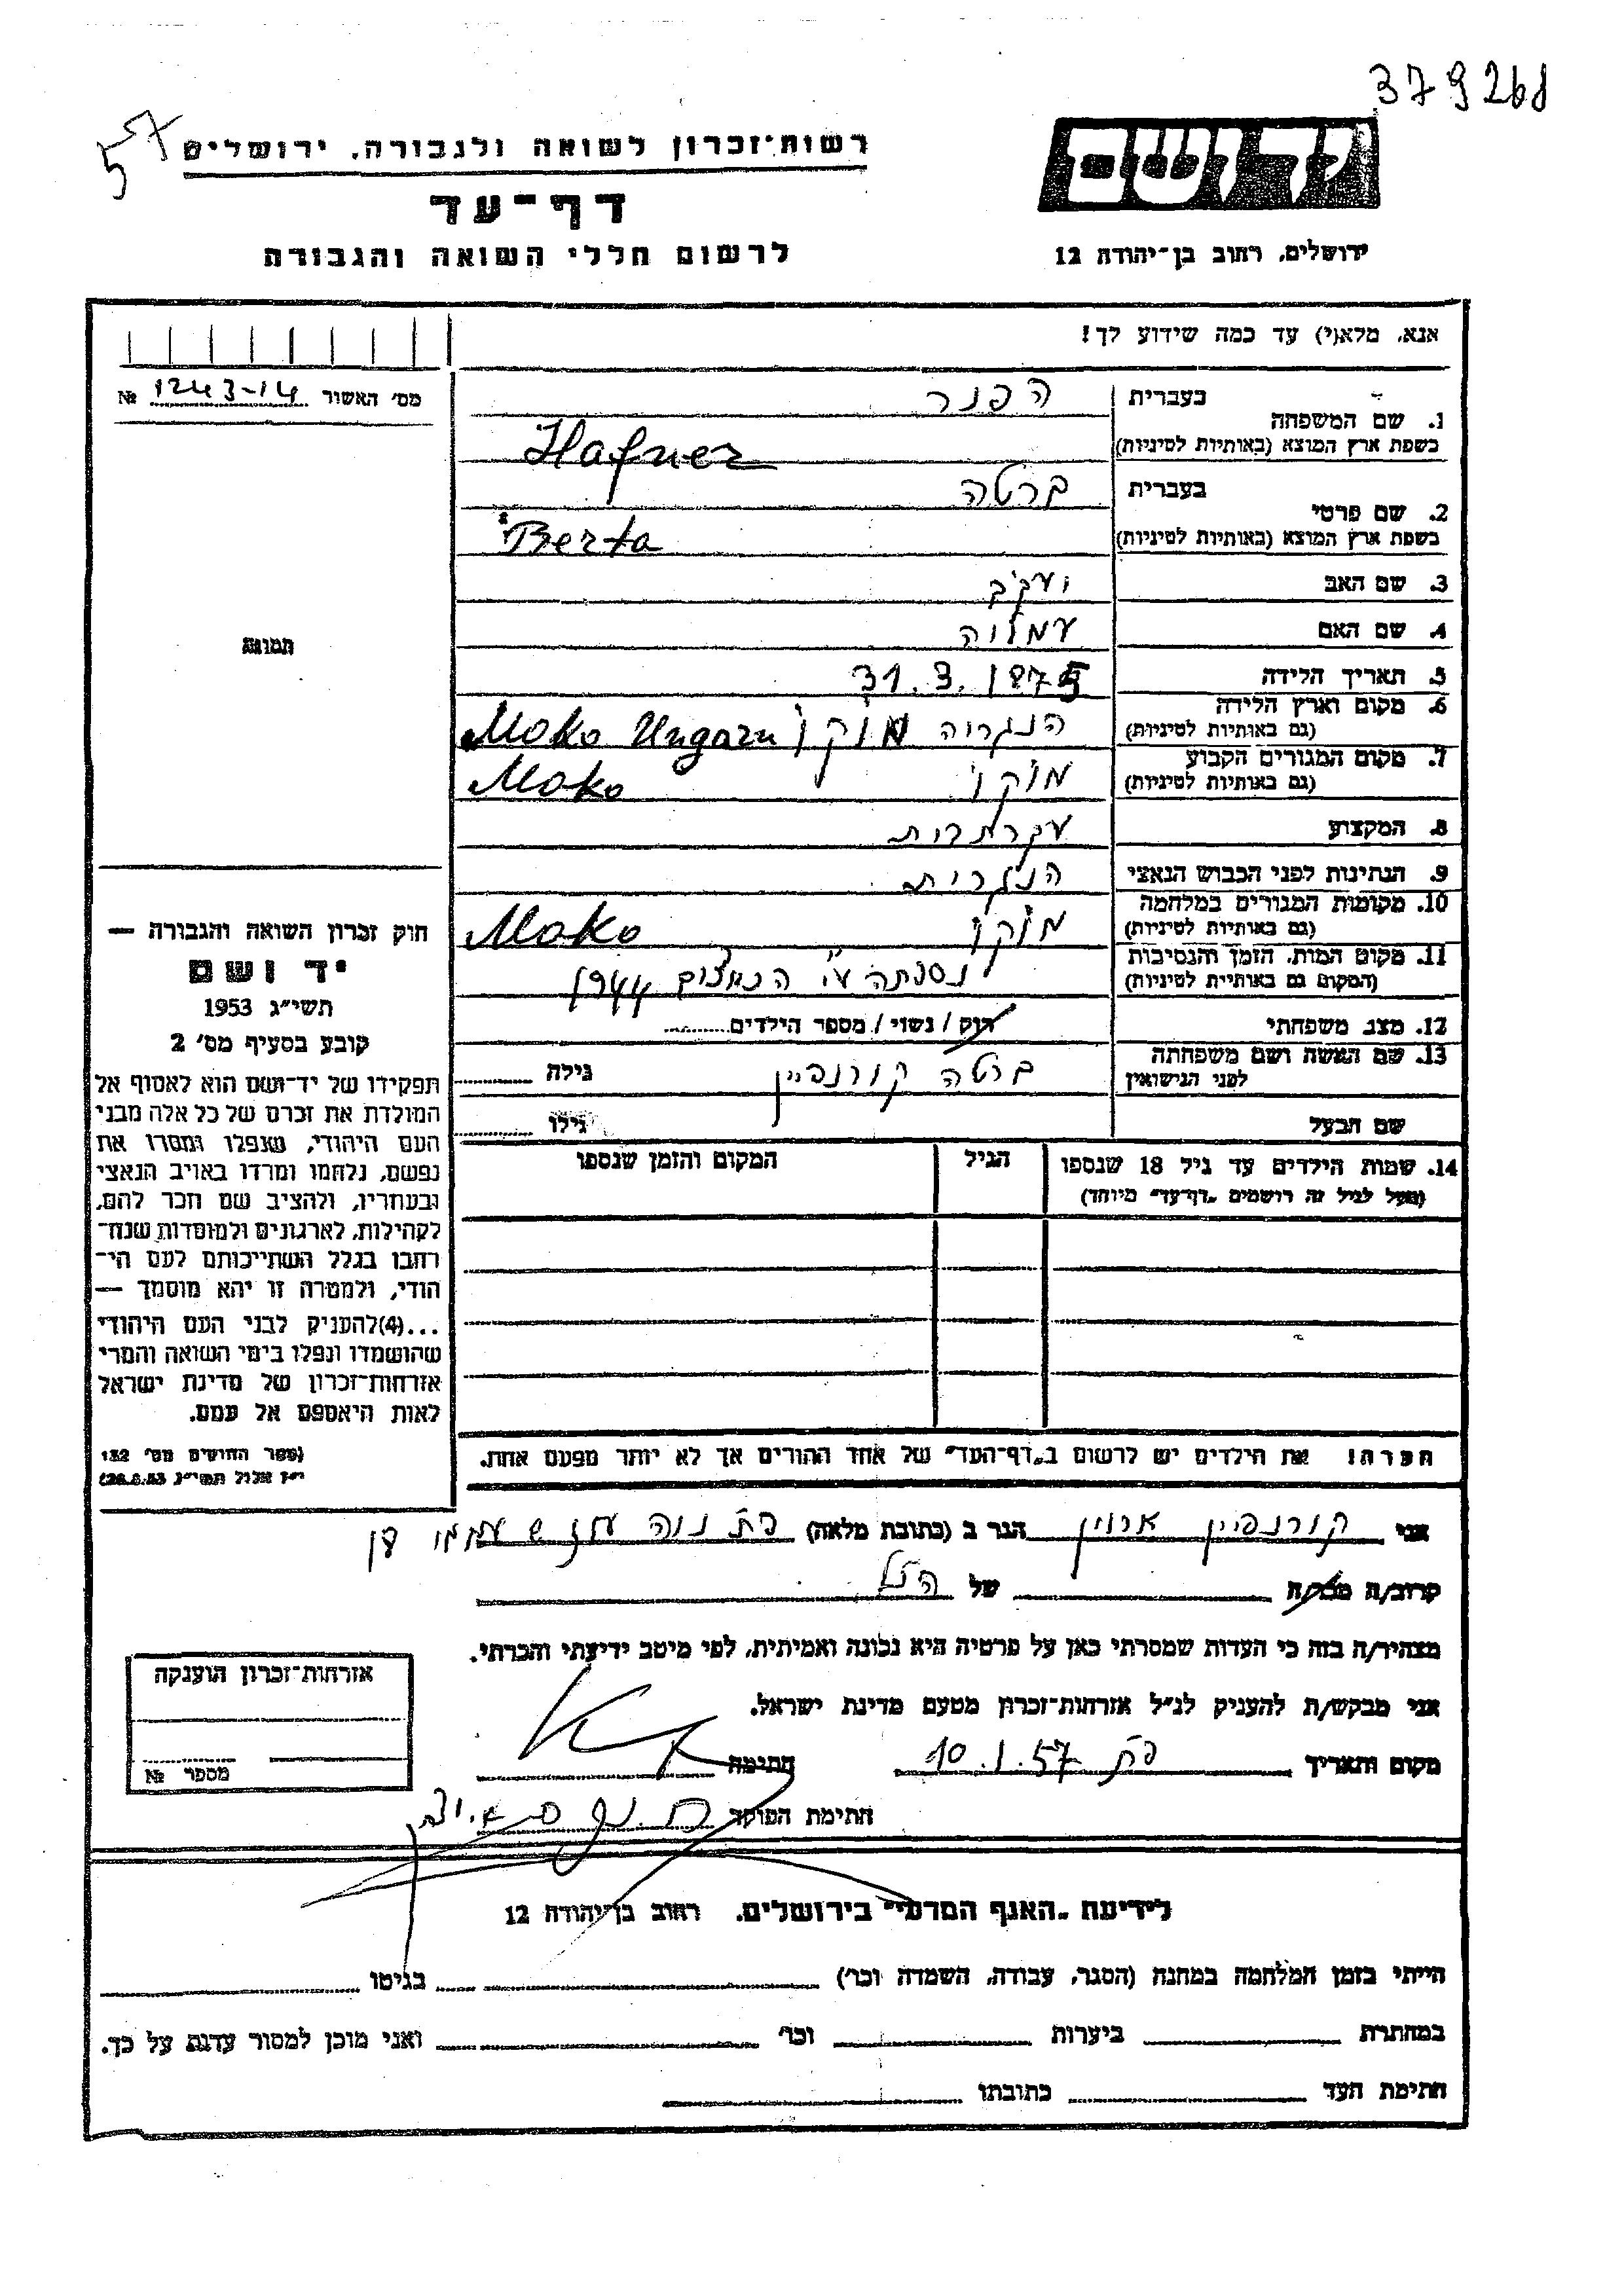 379268
57
רשות־זכרון לשואה ולגבורה, ירושלים
יד ושם
דף־עד
לרשום חללי השואה והגבורה
ירושלים, רחוב בן־יהודה 12
אנא, מלא(י) עד כמה שידוע לך!
מס' האשור 1243-14 №
בעברית הפנר
1. שם המשפחה
בשפת ארץ המוצא (באותיות לטיניות) Hafner
בעברית ברטה
2. שם פרטי
בשפת ארץ המוצא (באותיות לטיניות) Berta
3. שם האב יעקב
4. שם האם
5. תאריך הלידה 31.3.1875
6. מקום וארץ הלידה
(גם באותיות לטיניות) הנגריה מוקו Moko Ungarn
7. מקום המגורים הקבוע
(גם באותיות לטיניות) מוקו Moko
8. המקצוע עקרת בית
9. הנתינות לפני הכבוש הנאצי הנגרית
10. מקומות המגורים במלחמה
(גם באותיות לטיניות) מוקו Moko
11. מקום המות, הזמן והנסיבות
(המקום גם באותיות לטיניות) נספתה ע"י הנאצים 1944
12. מצב משפחתי רווק / נשוי / מספר הילדים
13. שם האשה ושם משפחתה
לפני הנישואין ברטה קורנפיין גילה
שם הבעל גילו
14. שמות הילדים עד גיל 18 שנספו הגיל המקום והזמן שנספו
(מעל לגיל זה רושמים "דף־עד" מיוחד)
הערה! את הילדים יש לרשום ב"דף־העד" של אחד ההורים אך לא יותר מפעם אחת.
תמונה
חוק זכרון השואה והגבורה —
יד ושם
תשי"ג 1953
קובע בסעיף מס' 2
תפקידו של יד־ושם הוא לאסוף אל
המולדת את זכרם של כל אלה מבני
העם היהודי, שנפלו ומסרו את
נפשם, נלחמו ומרדו באויב הנאצי
ובעוזריו, ולהציב שם וזכר להם,
לקהילות, לארגונים ולמוסדות שנח־
רבו בגלל השתייכותם לעם הי־
הודי, ולמטרה זו יהא מוסמך —
...(4)להעניק לבני העם היהודי
שהושמדו ונפלו בימי השואה והמרי
אזרחות־זכרון של מדינת ישראל
לאות היאספם אל עמם.
(ספר החוקים מס' 132
י"ז אלול תשי"ג 28.8.53)
אני קורנפיין ארווין הגר ב (כתובת מלאה) פת נווה עוז
קרוב/ה מכר/ה של הנ"ל
מצהיר/ה בזה כי העדות שמסרתי כאן על פרטיה היא נכונה ואמיתית, לפי מיטב ידיעתי והכרתי.
אני מבקש/ת להעניק לנ"ל אזרחות־זכרון מטעם מדינת ישראל.
מקום ותאריך פת 10.1.57 חתימה
חתימת הפוקד
אזרחות־זכרון הוענקה
מספר №
לידיעת "האגף המדעי" בירושלים, רחוב בן־יהודה 12
הייתי בזמן המלחמה במחנה (הסגר, עבודה, השמדה וכו') בגיטו
במחתרת ביערות וכו' ואני מוכן למסור עדות על כך.
חתימת העד כתובתו